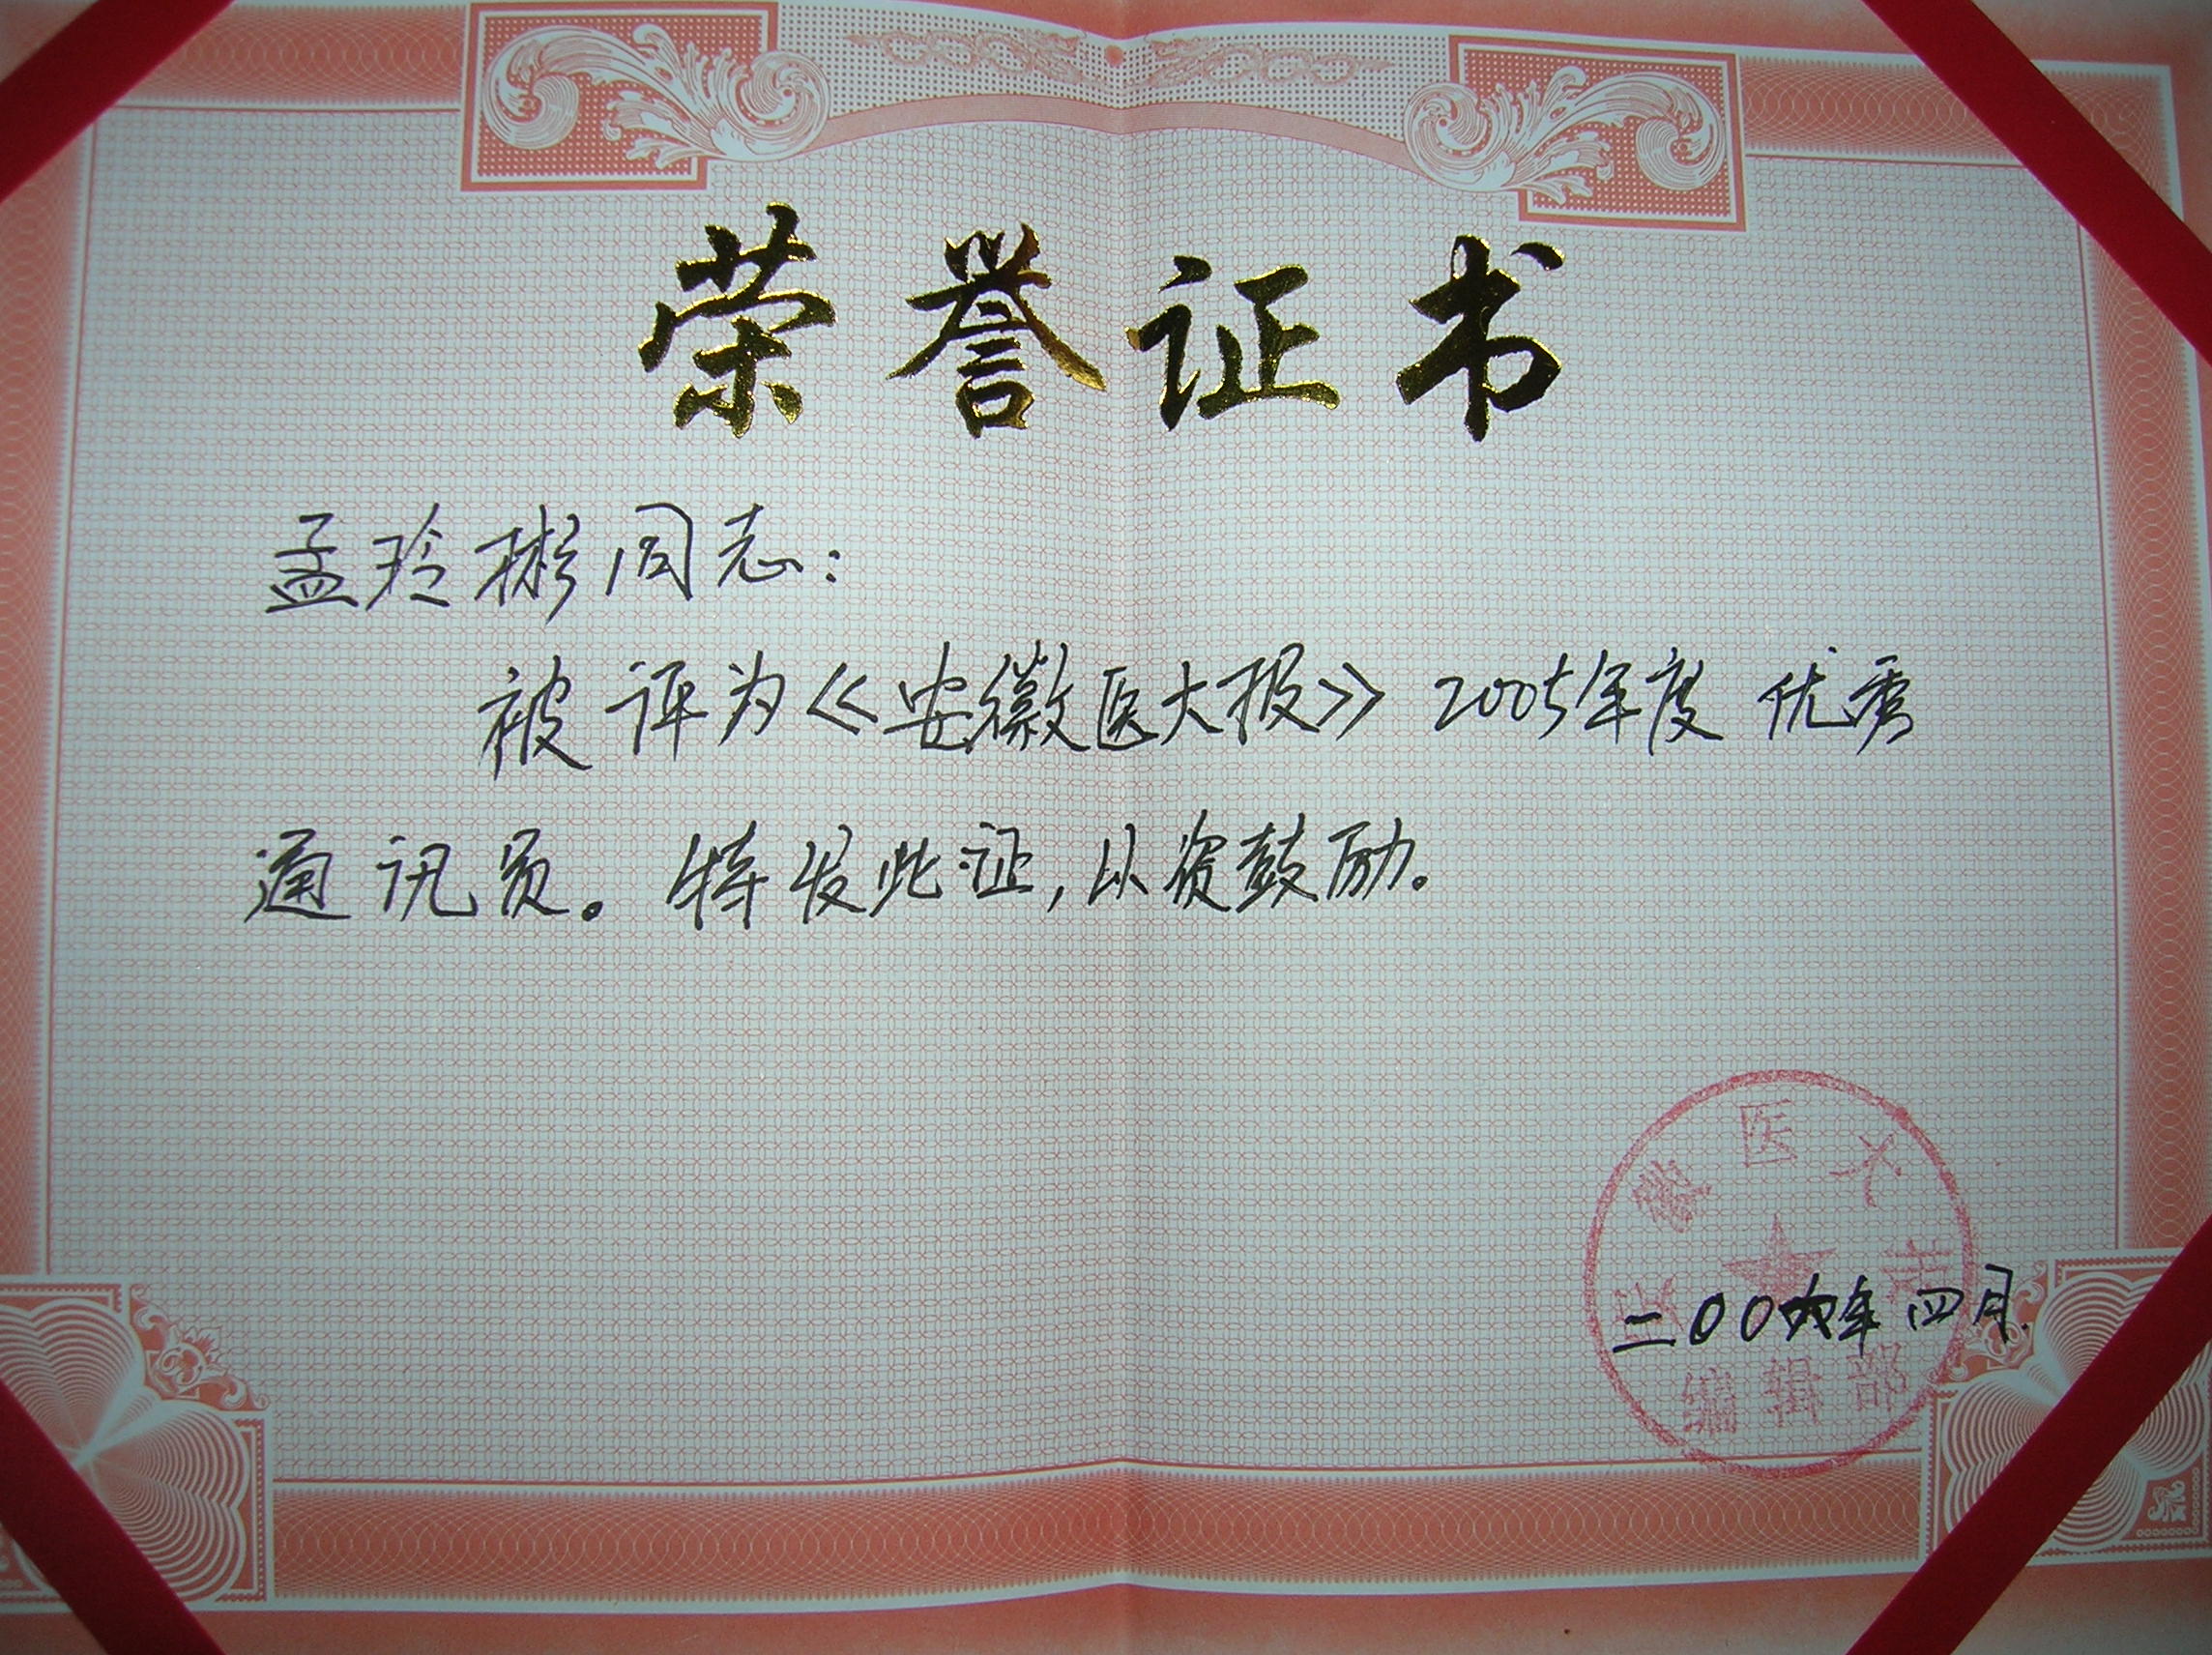 荣誉证书
孟玲彬同志：
被评为《安徽医大报》2005年度优秀
通讯员。特发此证，以资鼓励。
安徽医大报
二〇〇六年四月
编辑部